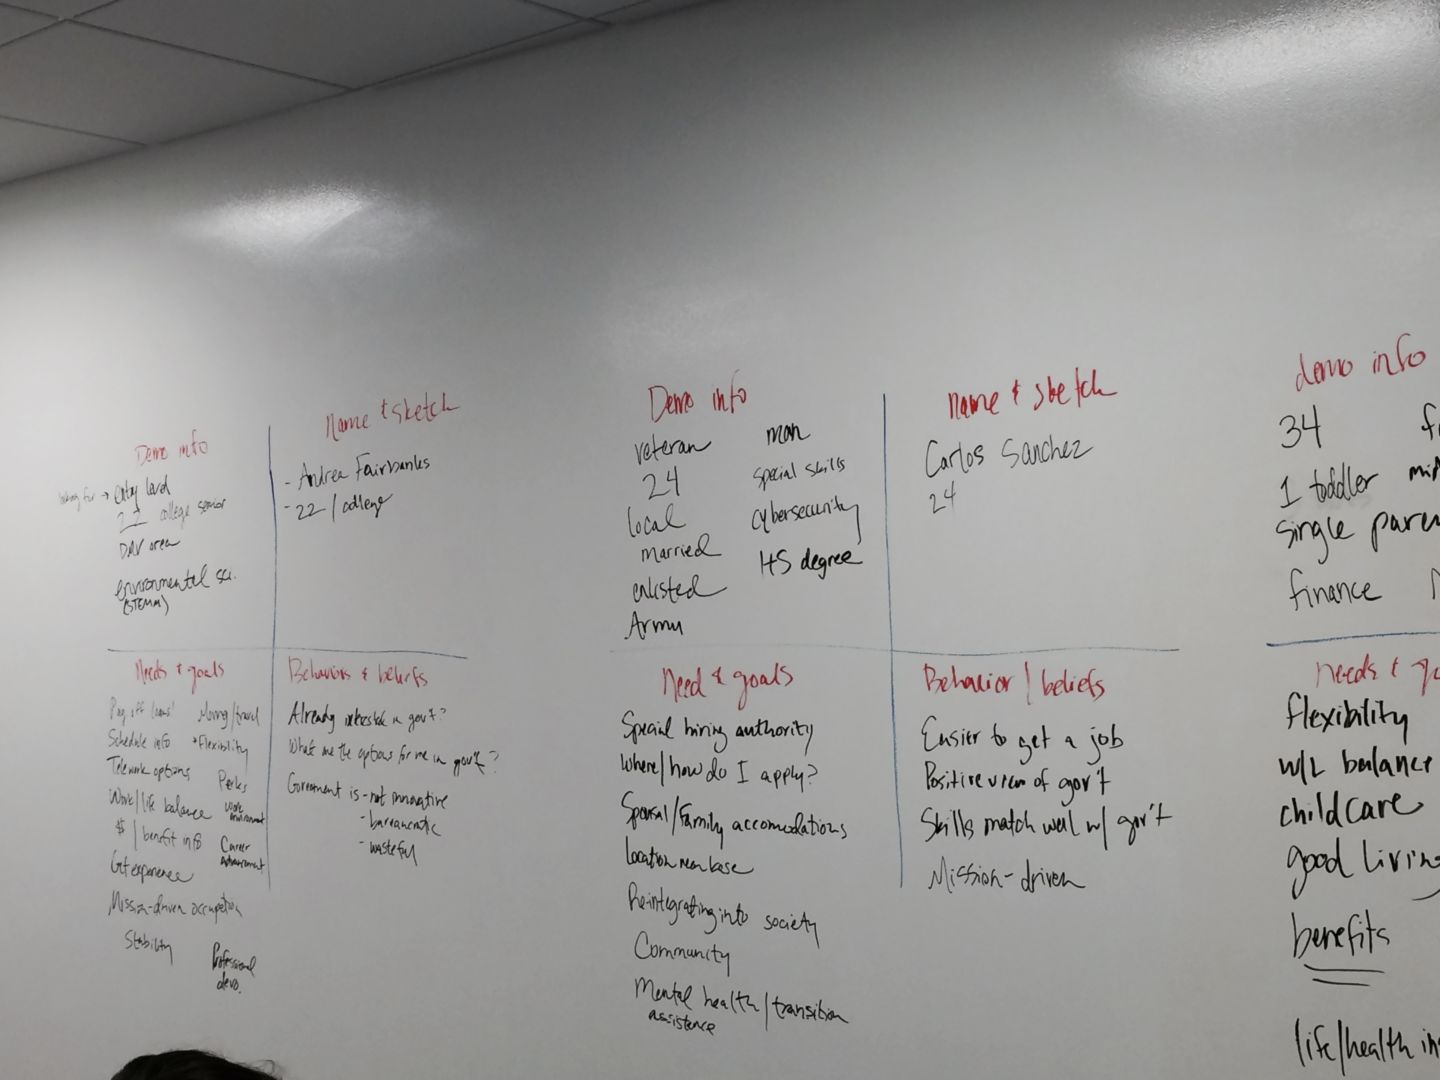 Demo info
looking for → entry level
22 college senior
DMV area
environmental sci.
(STEMM)
Name & sketch
- Andrea Fairbanks
- 22 / college
Needs & goals
Pay off loans!
Schedule info
Telework options
Work/life balance
$ / benefit info
Get experience
Mission-driven occupation
Stability
Moving/travel
*Flexibility
Perks
Work environment
Career advancement
Professional
devo.
Behaviors & beliefs
Already interested in gov't?
What are the options for me in gov't?
Government is - not innovative
- bureaucratic
- wasteful
Demo info
veteran
24
local
married
enlisted
Army
man
special skills
cybersecurity
HS degree
Name & sketch
Carlos Sanchez
24
Need & goals
Special hiring authority
Where/how do I apply?
Spousal/Family accomodations
Location near base
Re-integrating into society
Community
Mental health/transition
assistence
Behavior/beliefs
Easier to get a job
Positive view of gov't
Skills match well w/ gov't
Mission-driven
demo info
34
1 toddler
single
finance
needs &
flexibility
w/L balance
childcare
good
benefits
life/health